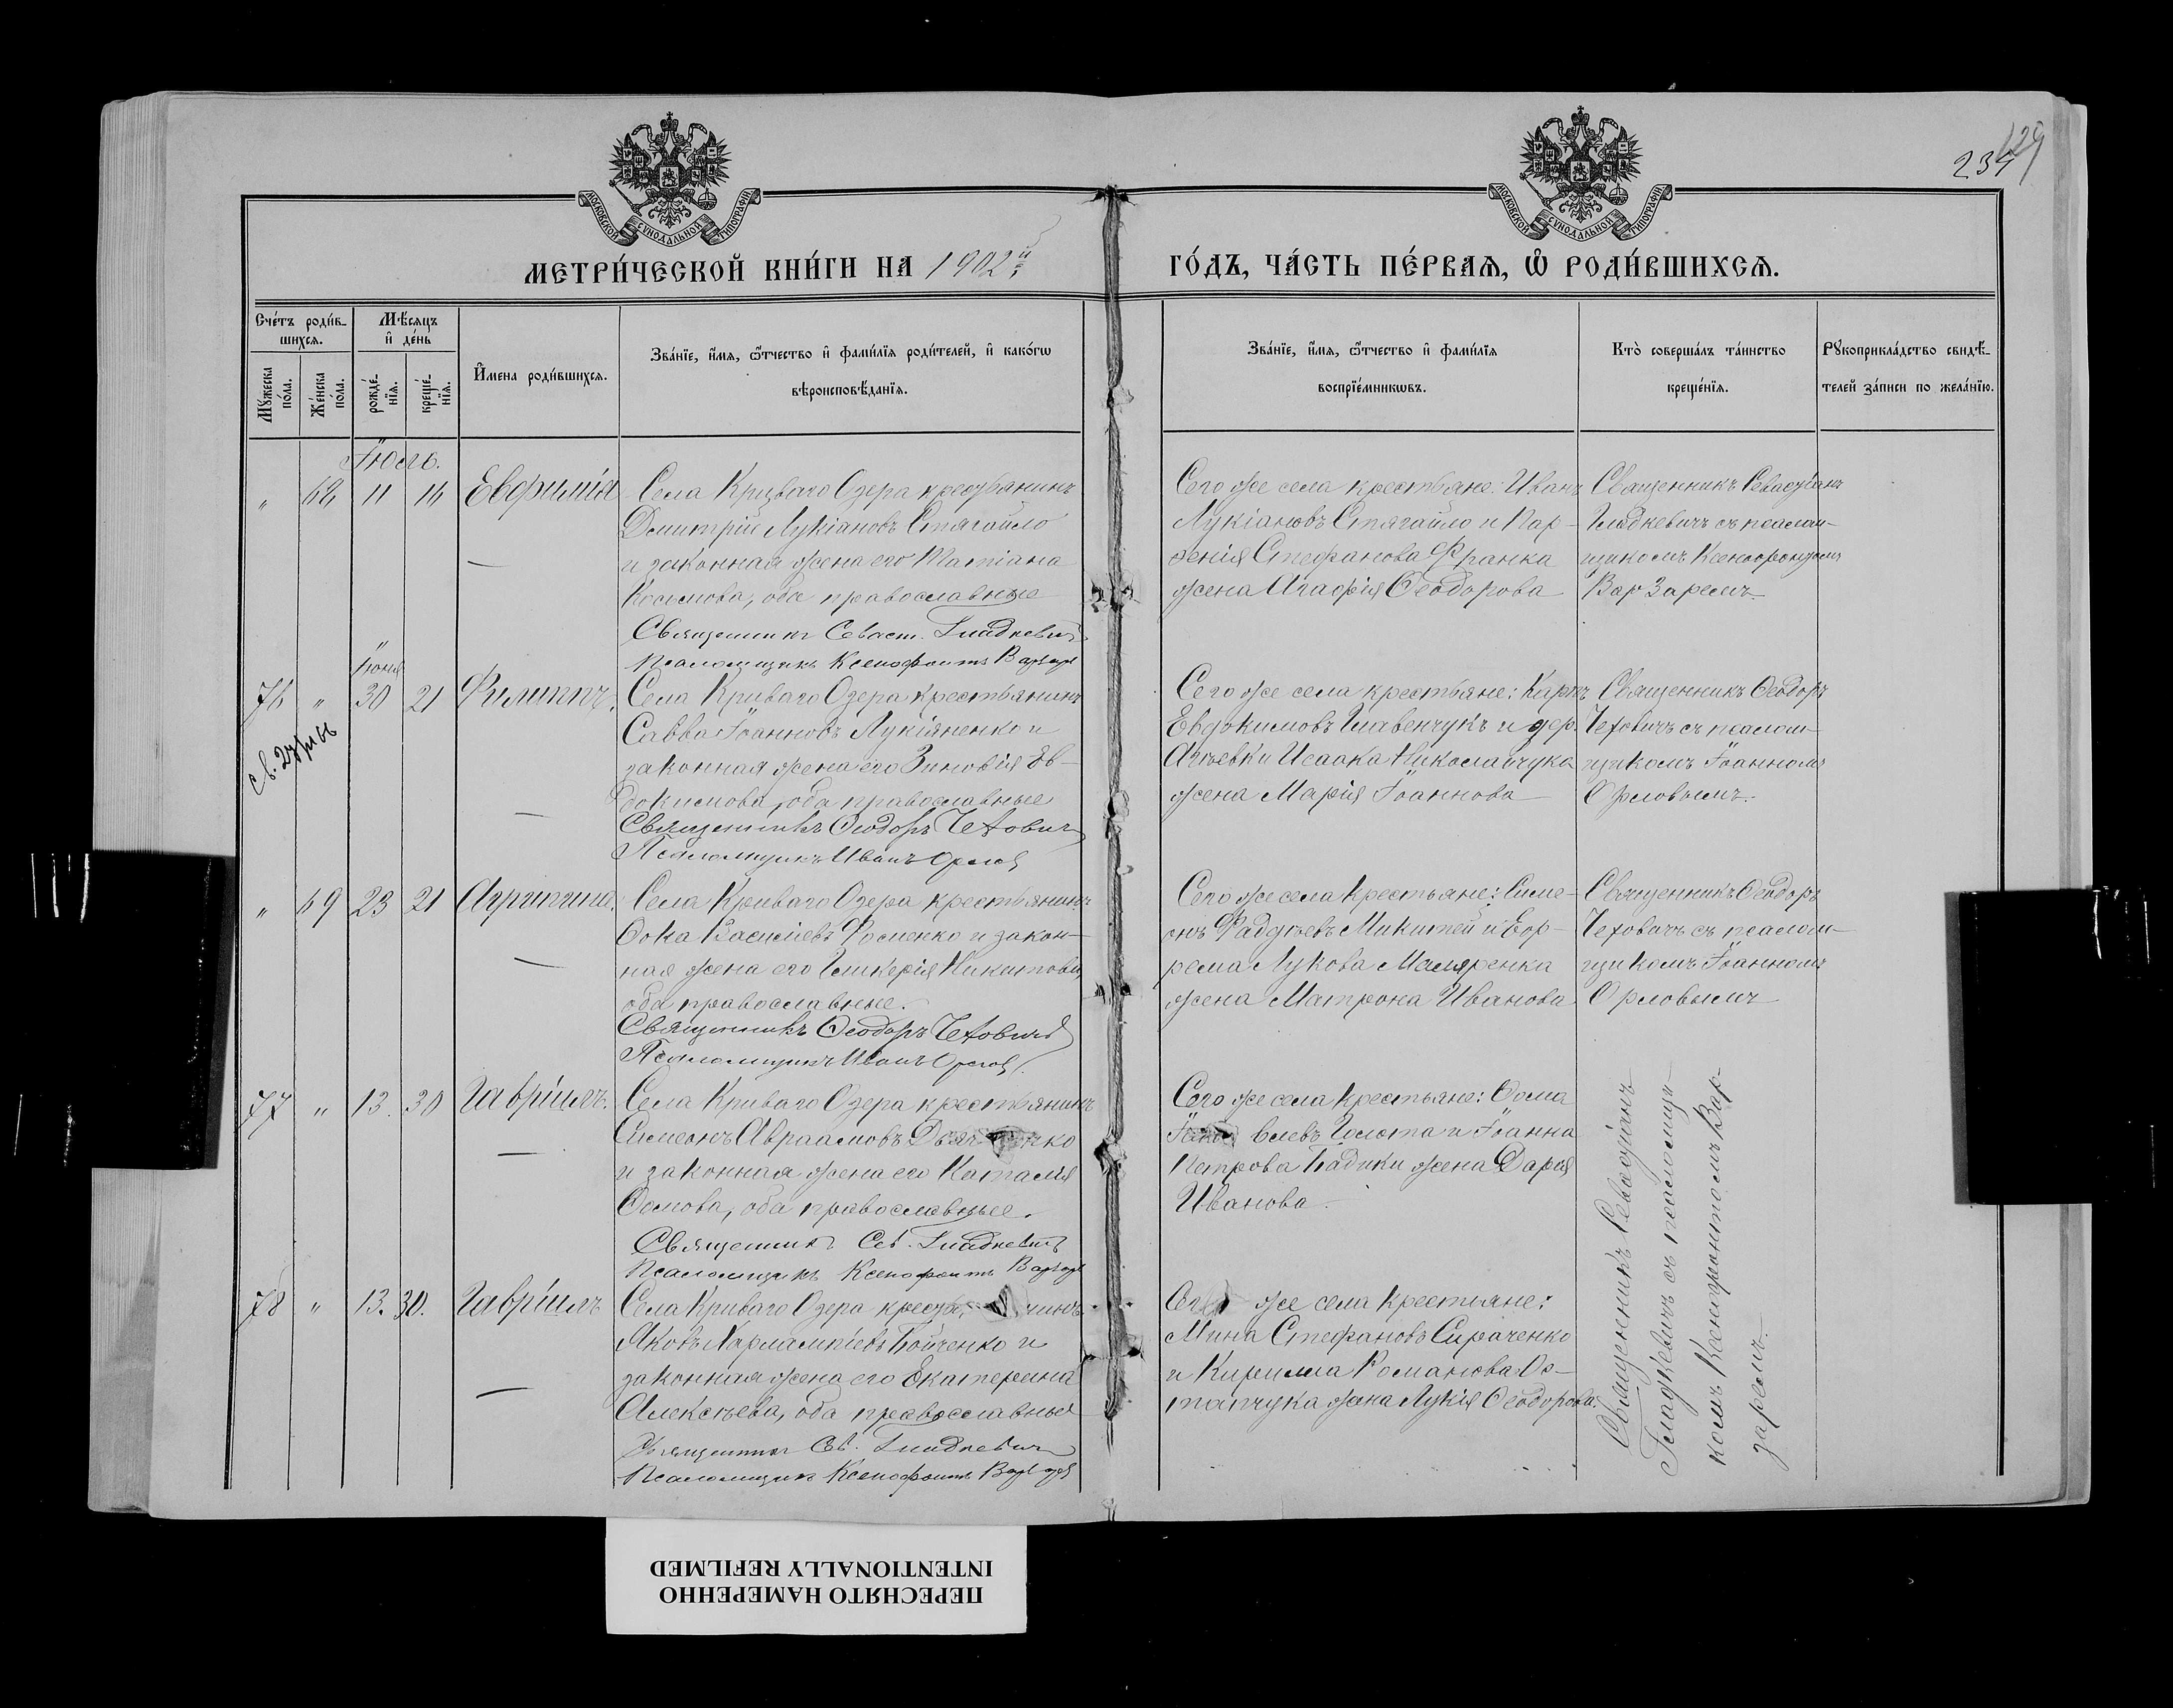 234
129
МОСКОВСКОЙ СѴНОДАЛЬНОЙ ТИПОГРАФІИ
МОСКОВСКОЙ СѴНОДАЛЬНОЙ ТИПОГРАФІИ
МЕТРИ́ЧЕСКОЙ КНИ́ГИ НА 1902й
ГО́ДЪ, ЧА́СТЬ ПЕ́РВАѦ, Ѽ РОДИ́ВШИХСѦ.
Сче́тъ роди́в-
шихсѧ.
Мꙋжеска по́ла.
Же́нска по́ла.
Мѣ́сѧцъ
и де́нь
рожде́-
нїѧ.
креще́-
нїѧ.
И҆мена роди́вшихсѧ.
Зва́нїе, и҆́мѧ, ѻ҆́тчество и҆ фами́лїѧ роди́телей, и҆ како́гѡ
вѣроисповѣ́данїѧ.
Зва́нїе, и҆́мѧ, ѻ҆́тчество и҆ фами́лїѧ
воспрїе́мникѡвъ.
Кто̀ соверша́лъ та́инство
креще́нїѧ.
Рꙋкоприкла́дство свидѣ́-
телей за́писи по жела́нїю.
Іюль.
" 68 11 14 Евфимія
Села Криваго Озера крестьянинъ
Димитрій Лукіановъ Стягайло
и законная жена его Татіана
Косьмова, оба православные
Священникъ Севаст. Гладкевичъ
Псаломщикъ Ксенофонтъ Варзарь
Сего же села крестьяне: Иванъ
Лукіановъ Стягайло и Пар-
ѳенія Стефанова Франка
жена Агафія Ѳеодорова
Священникъ Севастіанъ
Гладкевичъ съ псалом-
щикомъ Ксенофонтомъ
Варзаремъ.
Іюня
76 " 30 21 Филиппъ.
Села Криваго Озера крестьянинъ
Савва Іоанновъ Лукіяненко и
законная жена его Зиновія Ев-
докимова, оба православные
Священникъ Ѳеодоръ Чехович
Псаломщикъ Иванъ Орлов
Сего же села крестьяне: Карпъ
Евдокимовъ Главенчукъ и дер.
Агѣевки Исаака Николайчука
жена Марія Іоаннова
Священникъ Ѳеодоръ
Чеховичъ съ псалом-
щикомъ Іоанномъ
Орловымъ.
" 69 23 21 Агрипина.
Села Криваго Озера крестьянинъ
Ѳока Василіевъ Фоменко и закон-
ная жена его Гликерія Никитова,
оба православные.
Священникъ Ѳеодоръ Чеховичъ
Псаломщикъ Иванъ Орлов.
Сего же села крестьяне: Симе-
онъ Фадѣевъ Микитей и Еф-
рема Лукова Маляренка
жена Матрона Иванова
Священникъ Ѳеодоръ
Чеховичъ съ псалом-
щикомъ Іоанномъ
Орловымъ
77 " 13. 30 Гавріилъ.
Села Криваго Озера крестьянинъ
Симеонъ Авраамовъ
и законная жена его Наталія
Ѳомова, оба православные.
Священникъ Сев. Гладкевичъ
Псаломщикъ Ксенофонтъ Варзарь
Сего же села крестьяне: Ѳома
Голота и Іоанна
Петрова Бадики жена Дарія
Иванова.
78 " 13. 30. Гавріилъ
Села Криваго Озера
Яковъ Харлампіевъ Бойченко и
законная жена его Екатерина
Алексѣева, оба православные
Священникъ Св. Гладкевичъ
Псаломщикъ Ксенофонтъ Варзарь
Сего же села крестьяне:
Мина Стефановъ Сираченко
и Кирилла Романова Ос-
тапчука жена Лукія Ѳеодорова.
Священникъ Севастіанъ
Гладкевичъ съ псаломщи-
комъ Ксенофонтомъ Вар-
заремъ.
ПЕРЕСНЯТО НАМЕРЕННО
INTENTIONALLY REFILMED